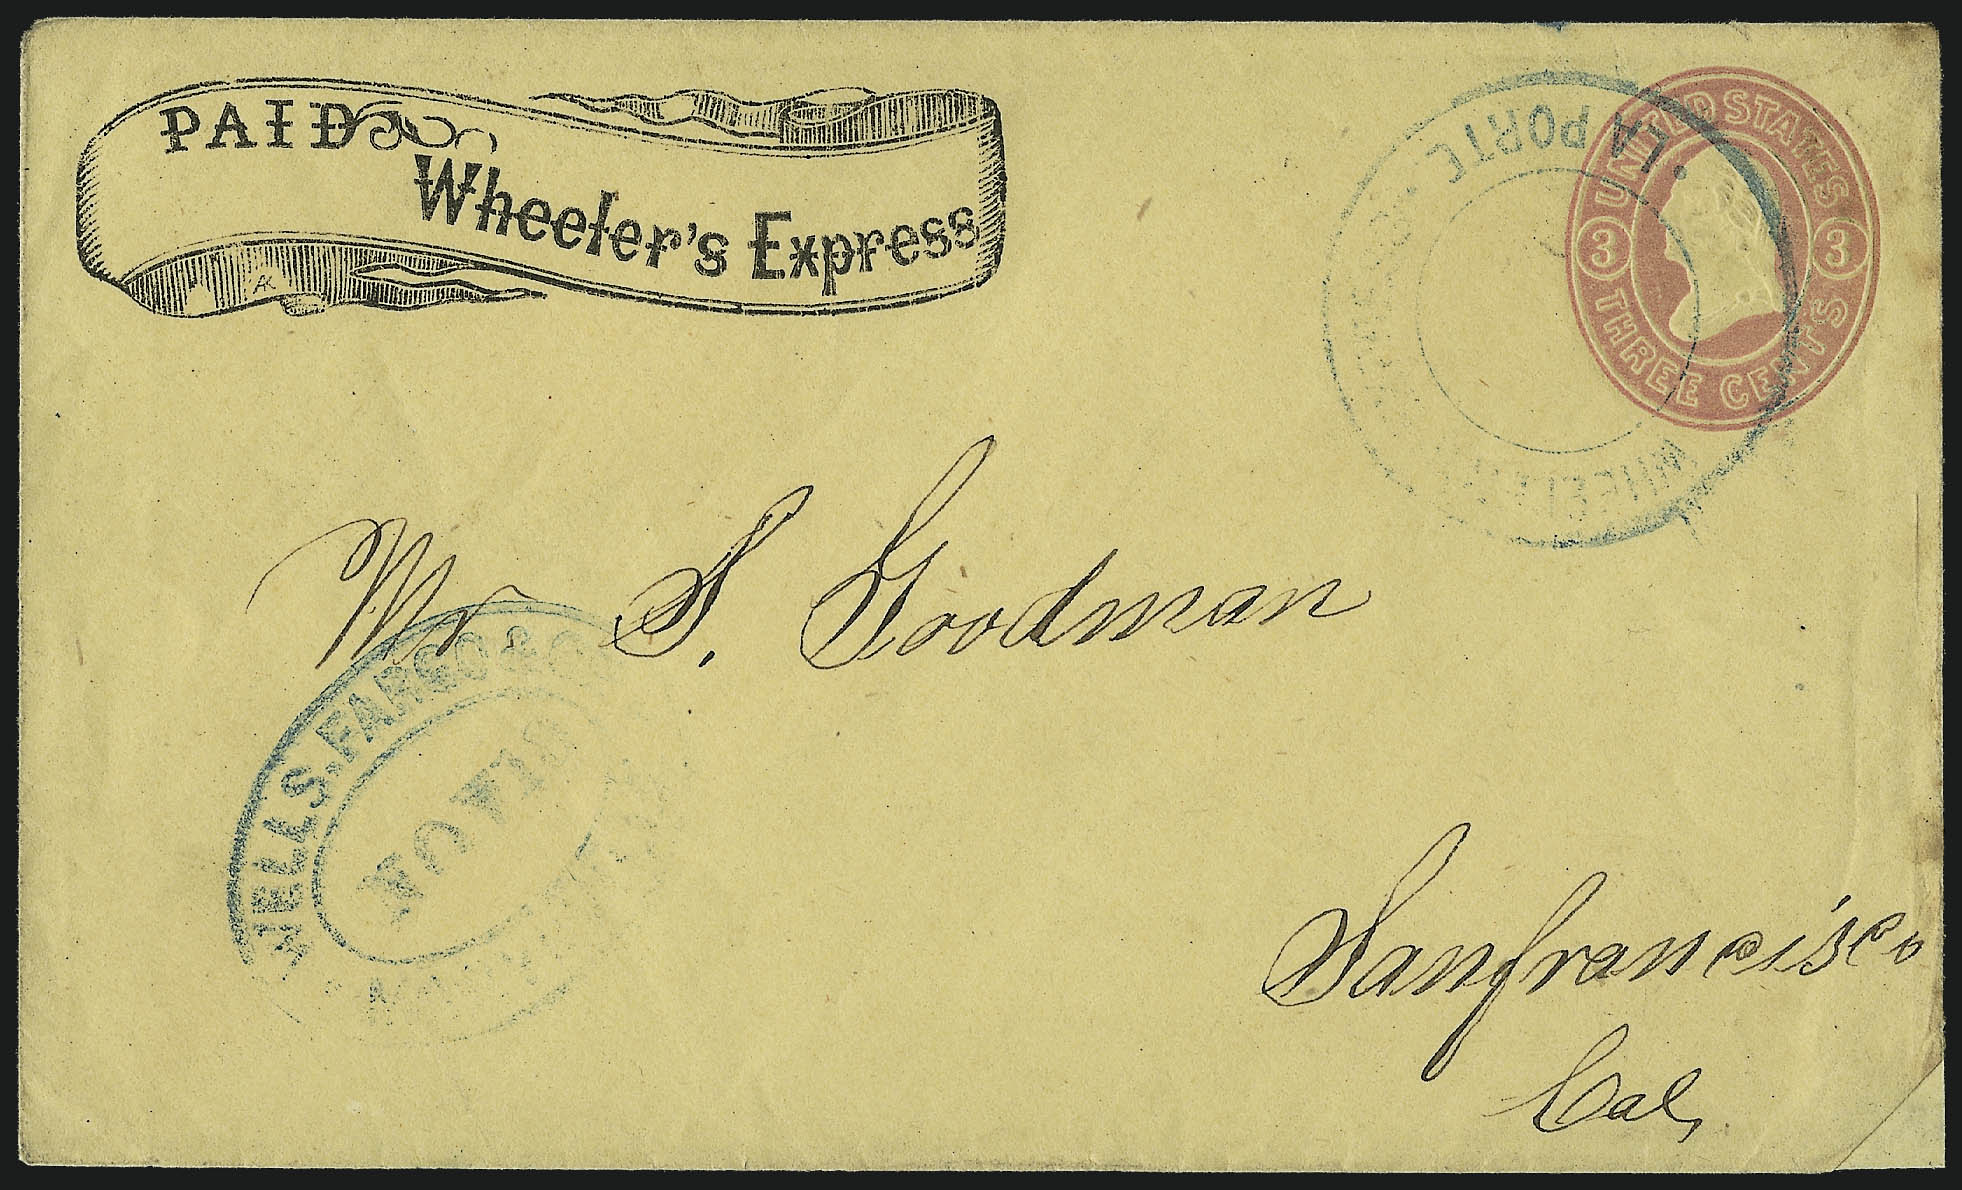 PAID
Wheeler's Express
UNITED STATES
3 3
THREE CENTS
LA PORTE
Mr S. Goodman
WELLS, FARGO & CO
NOV 13
Sanfrancisco
Cal,